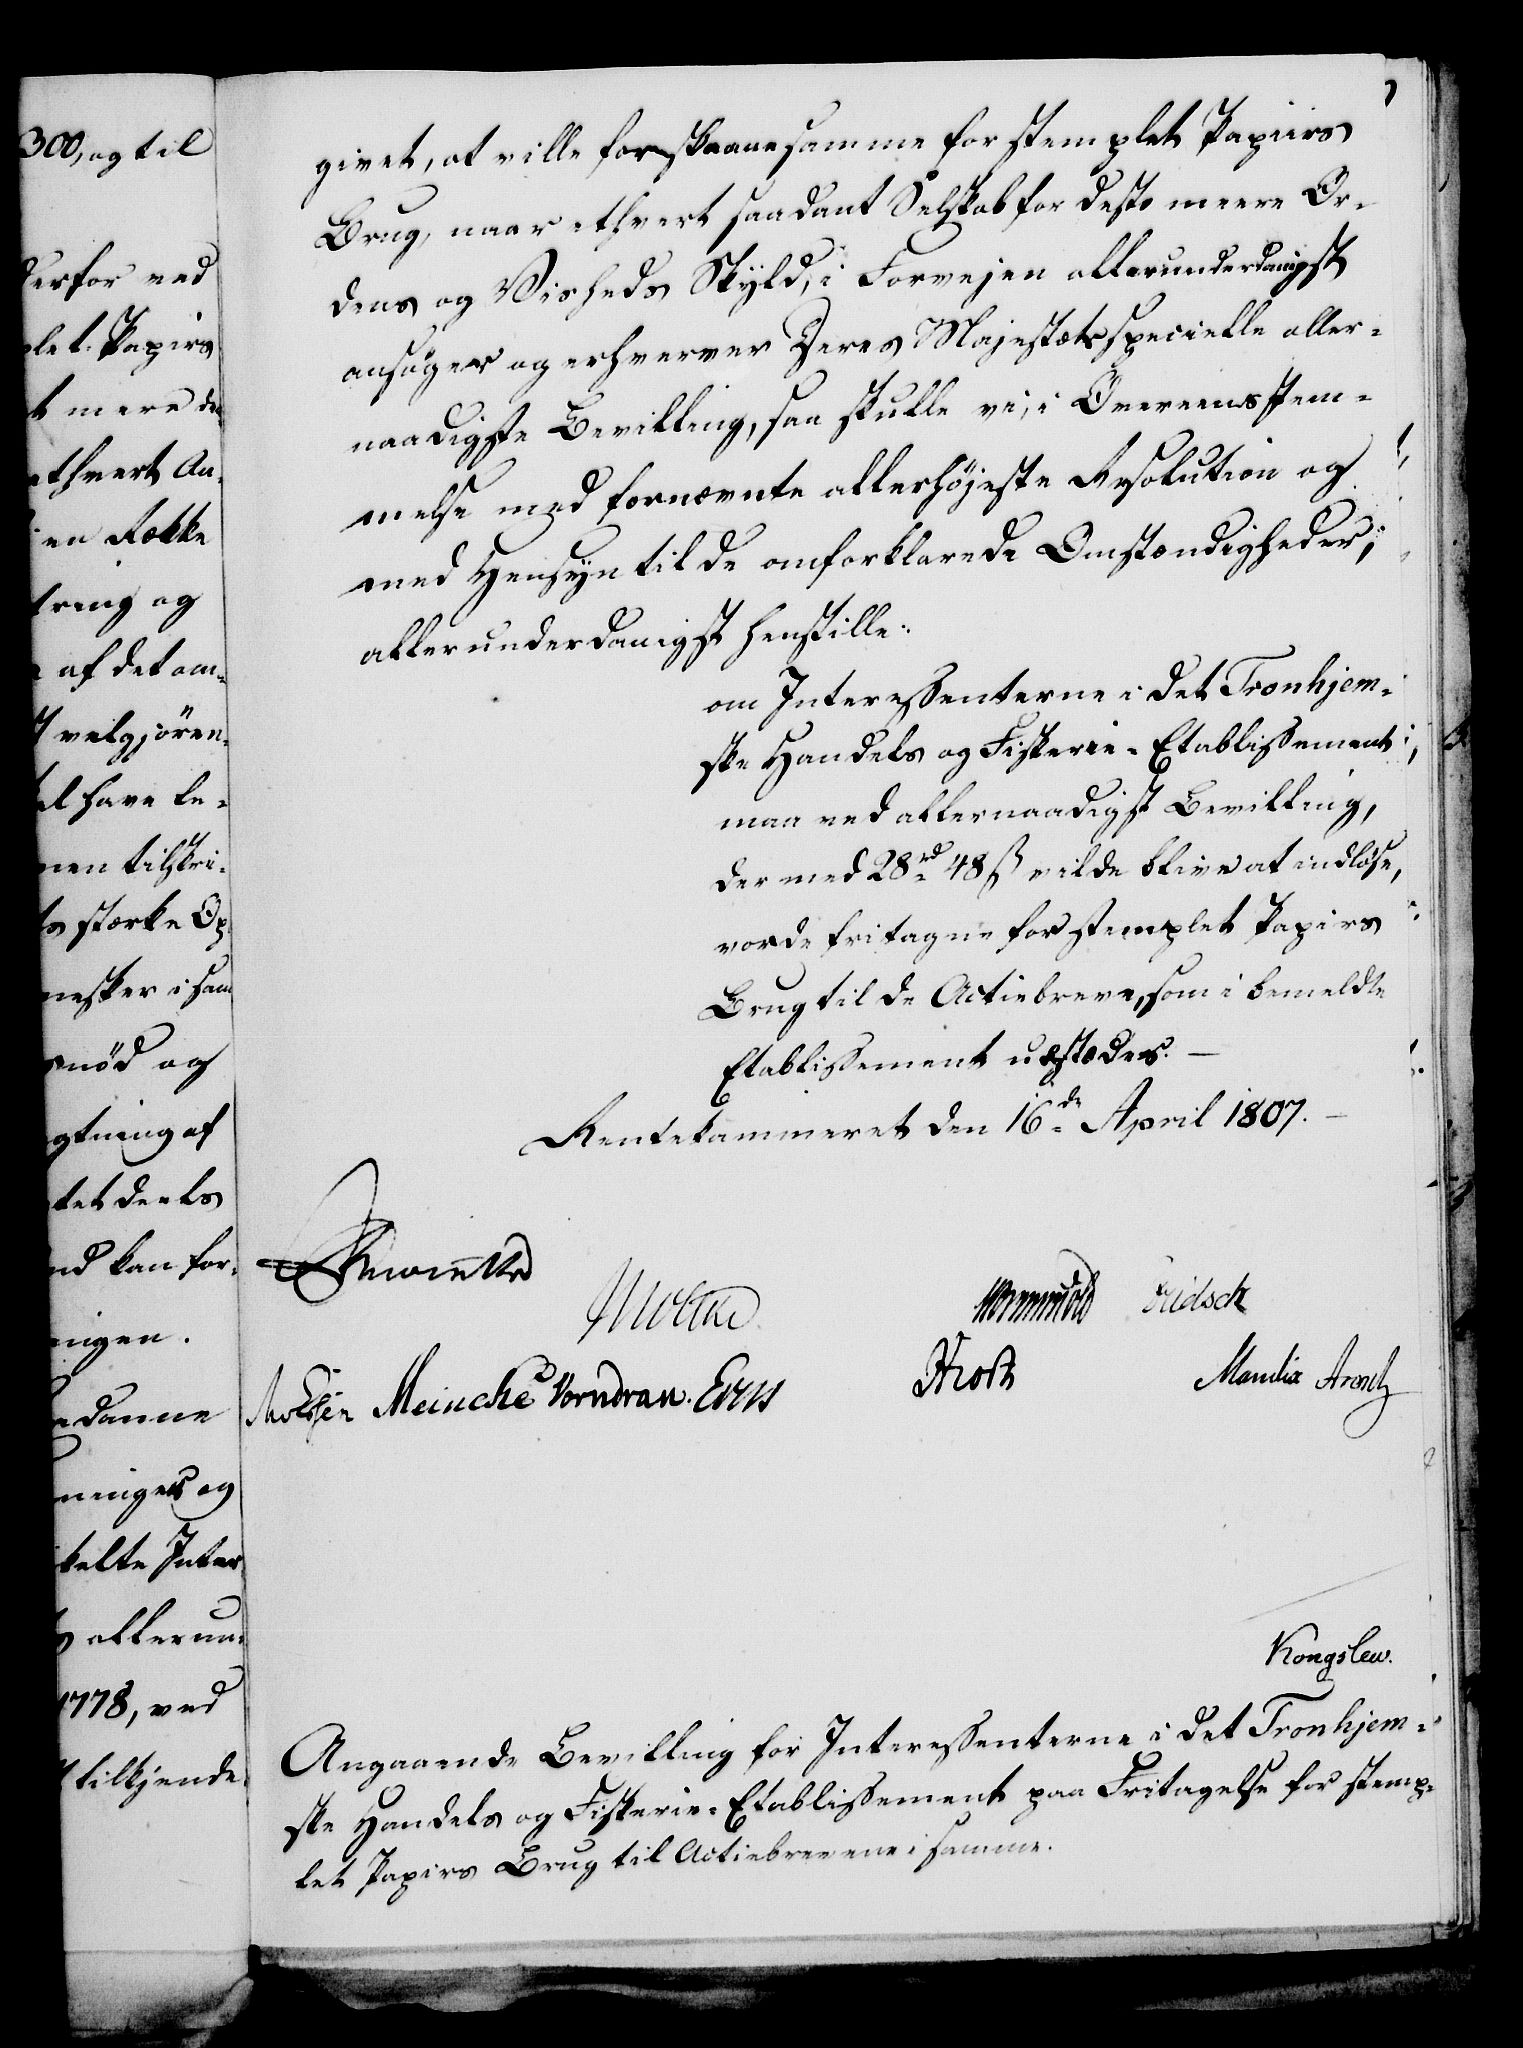 300, og til
derfor ved
plet Papirs
t mere de
ethvert An-
en Række
tring og
af det om-
velgjören-
al have le-
men tilskri-
ts stærke Op-
nesker i sam
snöd og
gtning af
tet deels
nd kan for-
ningen.
adanne
ninger og
kelte Inter
s allerun-
1778, ved
tilkjende-
givet, at ville forskaane samme for stemplet Papiirs
Brug, naar ethvert saadant Selskab for desto meere Or-
dens og Visheds Skyld, i Forvejen allerunderdanigst
ansöger og erhverver Deres Majestæts specielle aller-
naadigste Bevilling, saa skulle vi, i Overeensstem-
melse med fornævnte allerhöjeste Resolution og
med Hensyn til de omforklarede Omstændigheder,
allerunderdanigst henstille:
om Interessenterne i det Tronhjem-
ske Handels og Fiskerie-Etablissement
maa ved allernaadigst Bevilling,
der med 28 rd 48 ß vilde blive at indlöse,
vorde fritagne for stemplet Papirs
Brug til de Actiebreve, som i bemeldte
Etablissement udstædes. —
Rentekammeret den 16de April 1807. —
Reventlow
Moltke Wormskiold Fridsch
Meinche Vorndran. Mandix Arentz
Kongslew.
Angaaende Bevilling for Interessenterne i det Tronhjem-
ske Handels og Fiskerie-Etablissement paa Fritagelse for stemp-
let Papirs Brug til Actiebrevene i samme.